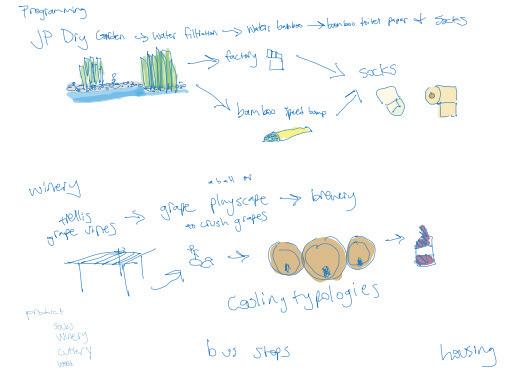 Programming
JP Dry Garden → water filtration → water bamboo → bamboo toilet paper + socks
factory
socks
bamboo speed bump
winery
trellis grape vines → grape playscape → brewery
a ball
to crush grapes
cooling typologies
product
socks
winery
cutlery
bus stops
housing